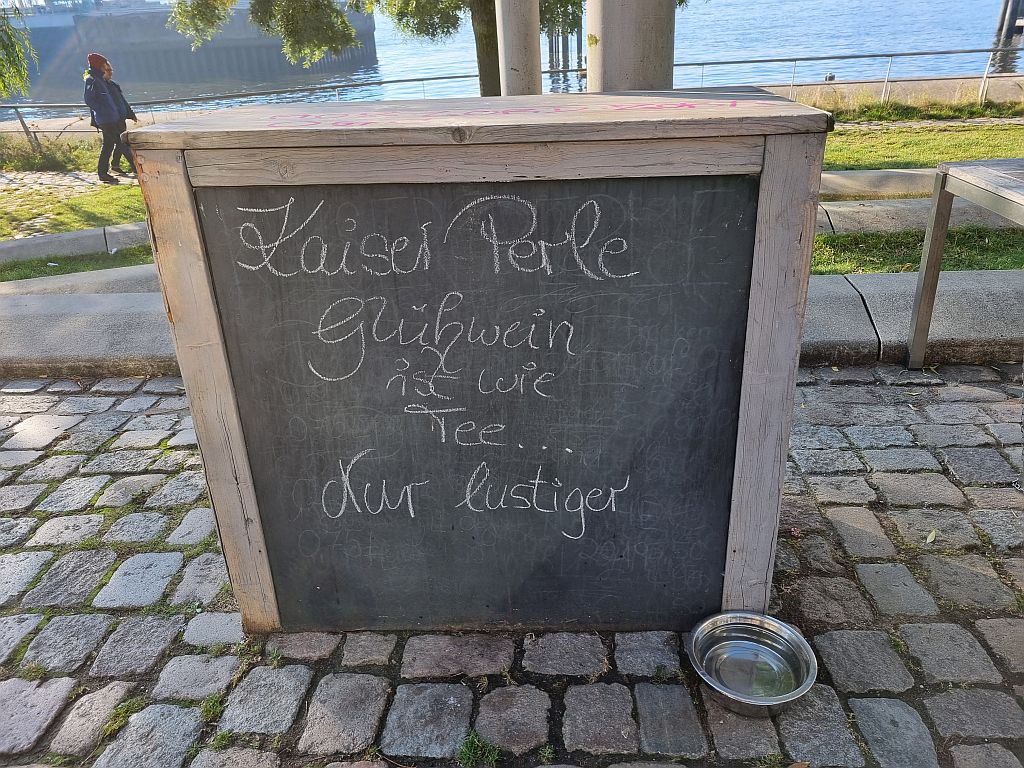 Kaiser Perle
Glühwein
ist wie
Tee...
Nur lustiger